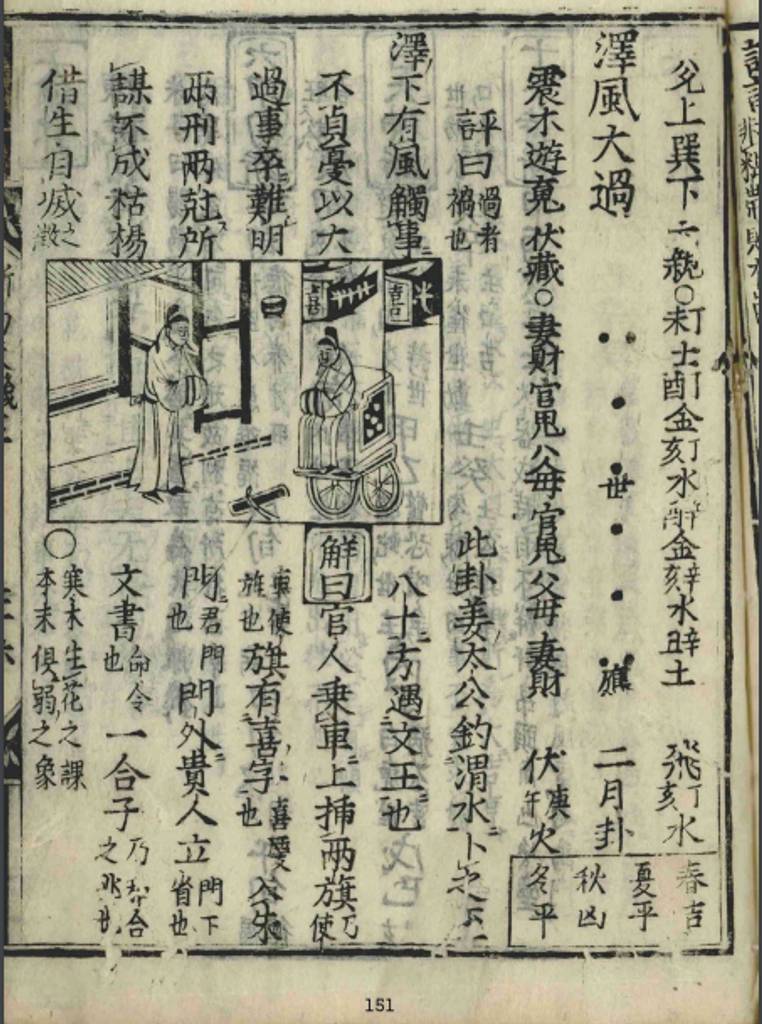 兊上巽下六𤣥○未丁土酉丁金亥丁水酉辛金亥辛水丑辛土　飛丁亥水
澤風大過　世　應　二月卦
震木遊䰟伏藏○妻財官鬼父母官鬼父母妻財　伏庚午火
春吉
夏平
秋凶
冬平
評曰過者禍也　此卦姜太公釣渭水卜之
澤下有風觸事　八十方遇文王也
不貞憂以大　觧曰官人乗車上揷兩旗乃使
過事卒難明　車使旗旌也旗有喜字喜慶也入朱
兩刑兩尅所　門君門也門外貴人立門下省也
謀不成枯楊　文書命令也一合子乃和合之兆也
借生自㓕之徵　○寒木生花之課本末俱弱之象
喜
喜
151